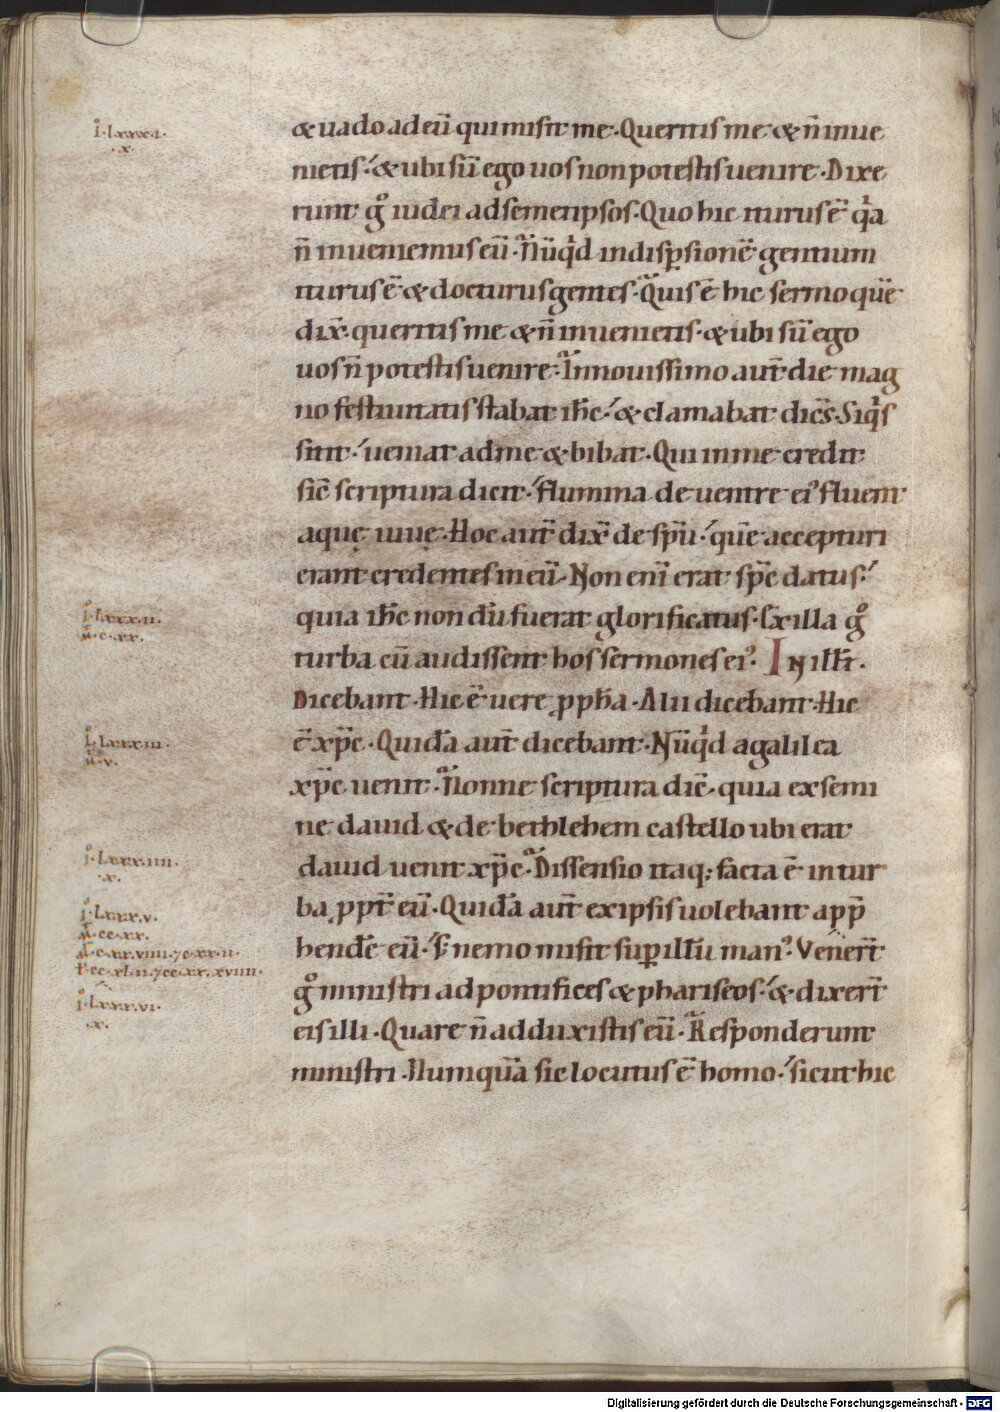 i lxxxi.
.x.
& uado ad eū qui misit me. Queritis me & n̄ inue
nietis. & ubi sū ego uos non potestis uenire. Dixe
runt gͦ iudei ad semetipsos. Quo hic iturus ē qͥa
n̄ inueniemus eū. Nūqͥd in dispsionē gentium
iturus ē & docturus gentes. Quis ē hic sermo quē
dix̄. queritis me & n̄ inuenietis. & ubi sū ego
uos n̄ potestis uenire. In nouissimo aut̄ die mag
no festiuitatis stabat ih̄c. & clamabat dicēs. Siqͥs
sitit. ueniat ad me & bibat. Qui in me credit
sic̄ scriptura dicit. flumina de uentre ei᾽ fluent
aquę uiuę. Hoc aut̄ dix̄ de sp̄u. quē accepturi
erant credentes in eū. Non eni̅ erat sp̄c datus.
i. lxxxii.
m̊. c. xx.
quia ih̄c non dū fuerat glorificatus. Ex illa gͦ
turba cū audissent hos sermones ei᾽. IN ill̄r.
Dicebant. Hic ē uere ꝓpħa. Alii dicebant. Hic
i. lxxxiii.
m̊. v.
ē xp̄c. Quidā aut̄ dicebant. Nūqͥd a galilea
xp̄c uenit. Nonne scriptura dic̄. quia ex semi
ne dauid & de bethlehem castello ubi erat
i. lxxxiiii.
.x.
dauid uenit xp̄c. Dissensio itaq; facta ē in tur
i. lxxxv.
m̊. cc. xx.
ba ꝓpt̄ eū. Quidā aut̄ ex ipsis uolebant app̄
m̊. c. xx. viiii. 7 c. xx. ii.
hendē eū. S; nemo misit suꝑ illū man᾽. Vener̄t
l̊. cc. xl. ii. 7 cc. xx. xviiii.
i. lxxxvi.
.x.
gͦ ministri ad pontifices & phariseos. & dixer̄t
eis illi. Quare n̄ adduxistis eū. Responderunt
ministri. Numquā sic locutus ē homo. sicut hic
Digitalisierung gefördert durch die Deutsche Forschungsgemeinschaft - DFG